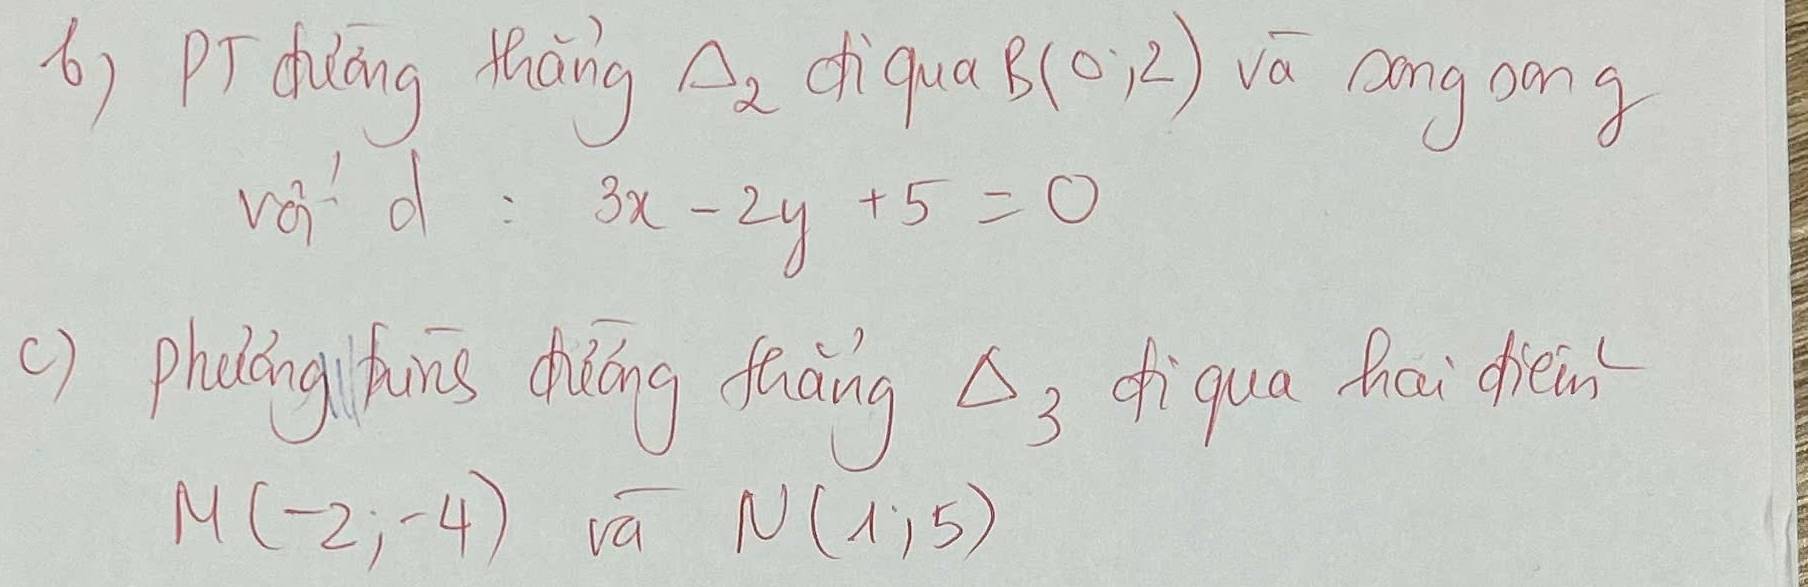 b) PT đường thẳng Δ₂ đi qua B(0;2) và song song
với d : 3x - 2y + 5 = 0
c) phương trình đường thẳng Δ₃ đi qua hai điểm
M(-2;-4) và N(1;5)